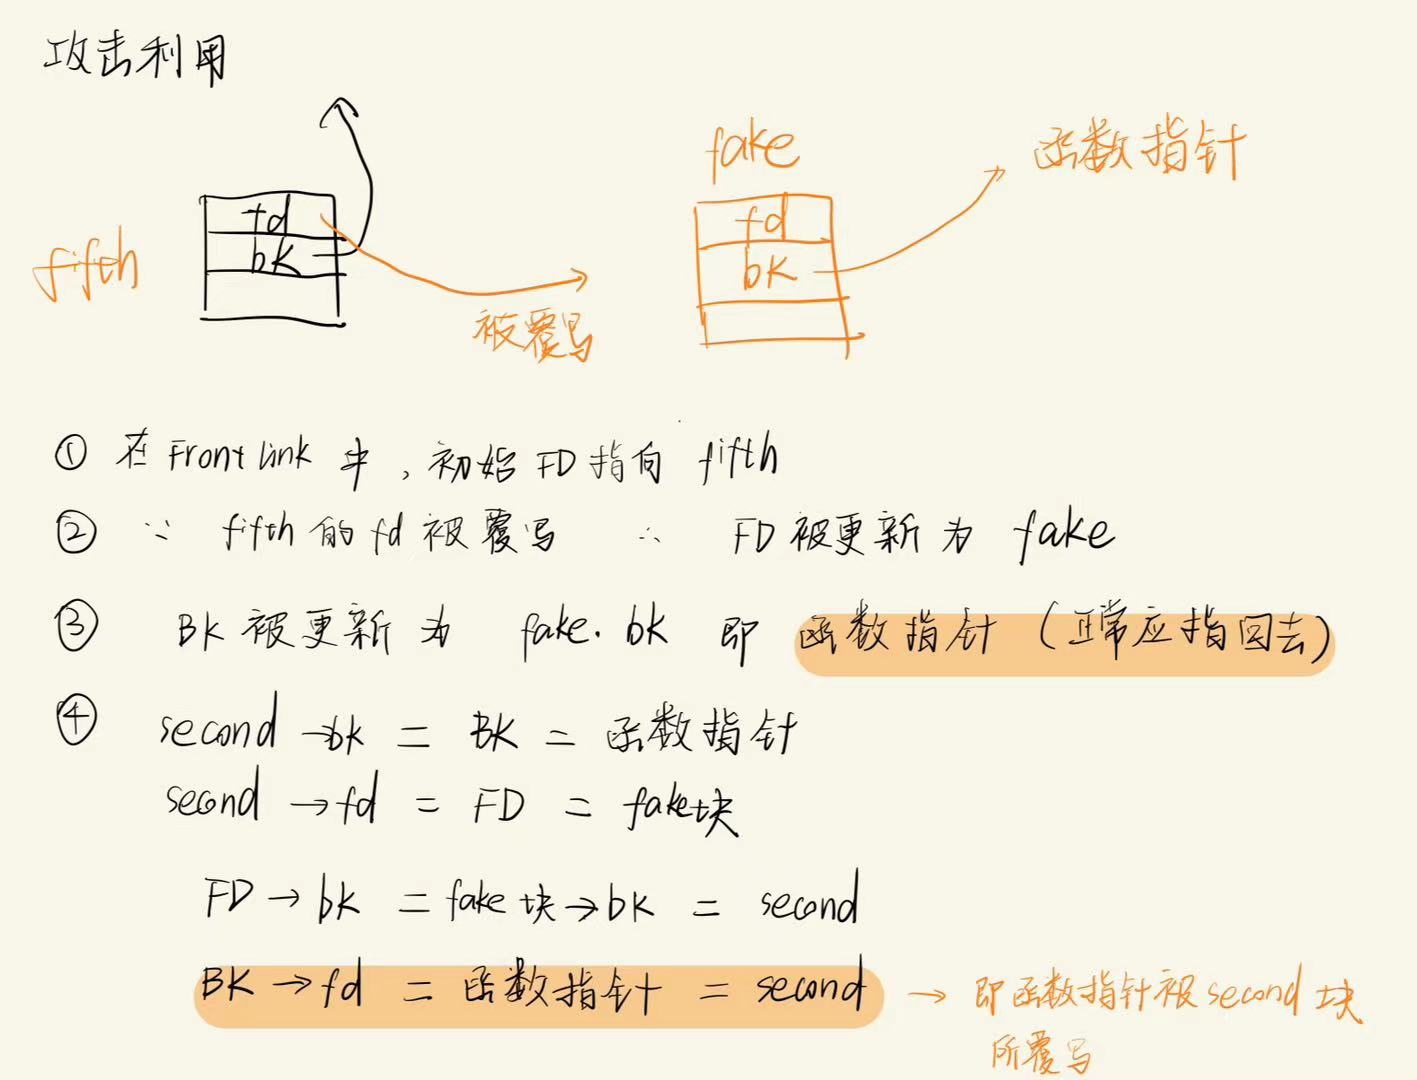 攻击利用
fake
函数指针
fd
fd
fifth
bk
bk
被覆写
① 在 Frontlink 中，初始 FD 指向 fifth
② ∵ fifth 的 fd 被覆写 ∴ FD 被更新为 fake
③ BK 被更新为 fake. bk 即 函数指针（正常应指回去）
④ second →bk = BK = 函数指针
second → fd = FD = fake块
FD → bk = fake 块→bk = second
BK → fd = 函数指针 = second → 即函数指针被second 块
所覆写